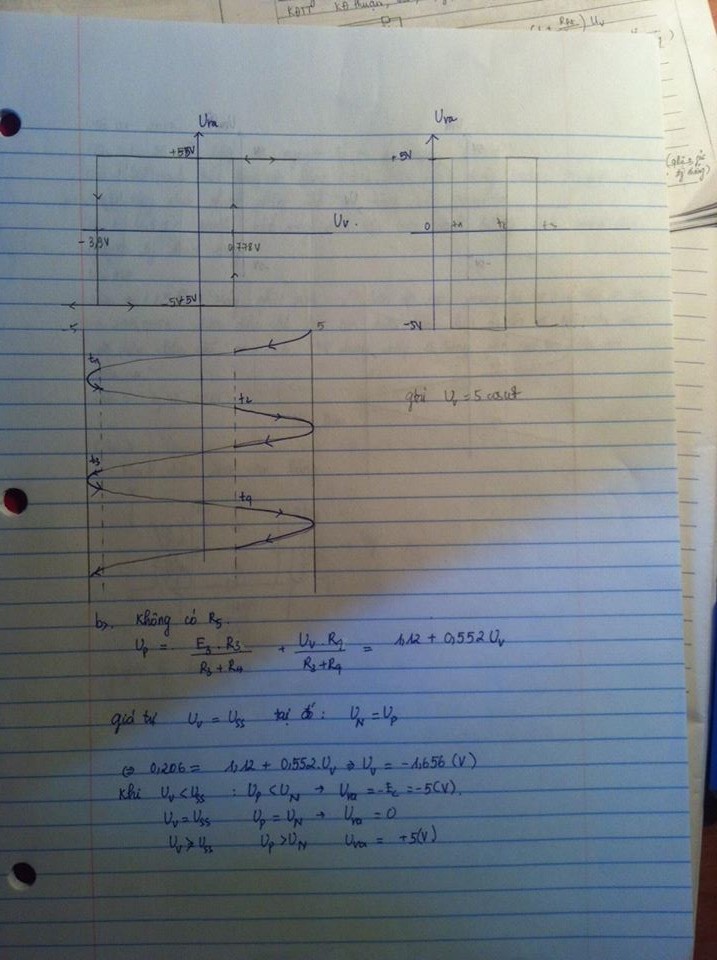 KĐTT KĐ thuận,
Ura
+5V
Uv.
-3,9V
0,778V
-5V
-5
5
t1
t2
t3
t4
Ura
+5V
0
t1
t2
t3
-5V
giả sử Uv = 5 cosωt
b>. không có R5.
Up = E3.R3 / R3+R4 + Uv.R4 / R3+R4 = 1,12 + 0,552Uv
giá trị Uv = Uss tại đó : UN = Up
⇔ 0,206 = 1,12 + 0,552.Uv ⇒ Uv = -1,656 (V)
khi Uv < Uss : Up < UN → Ura = -Ec = -5(V).
Uv = Uss Up = UN → Ura = 0
Uv > Uss Up > UN Ura = +5(V)